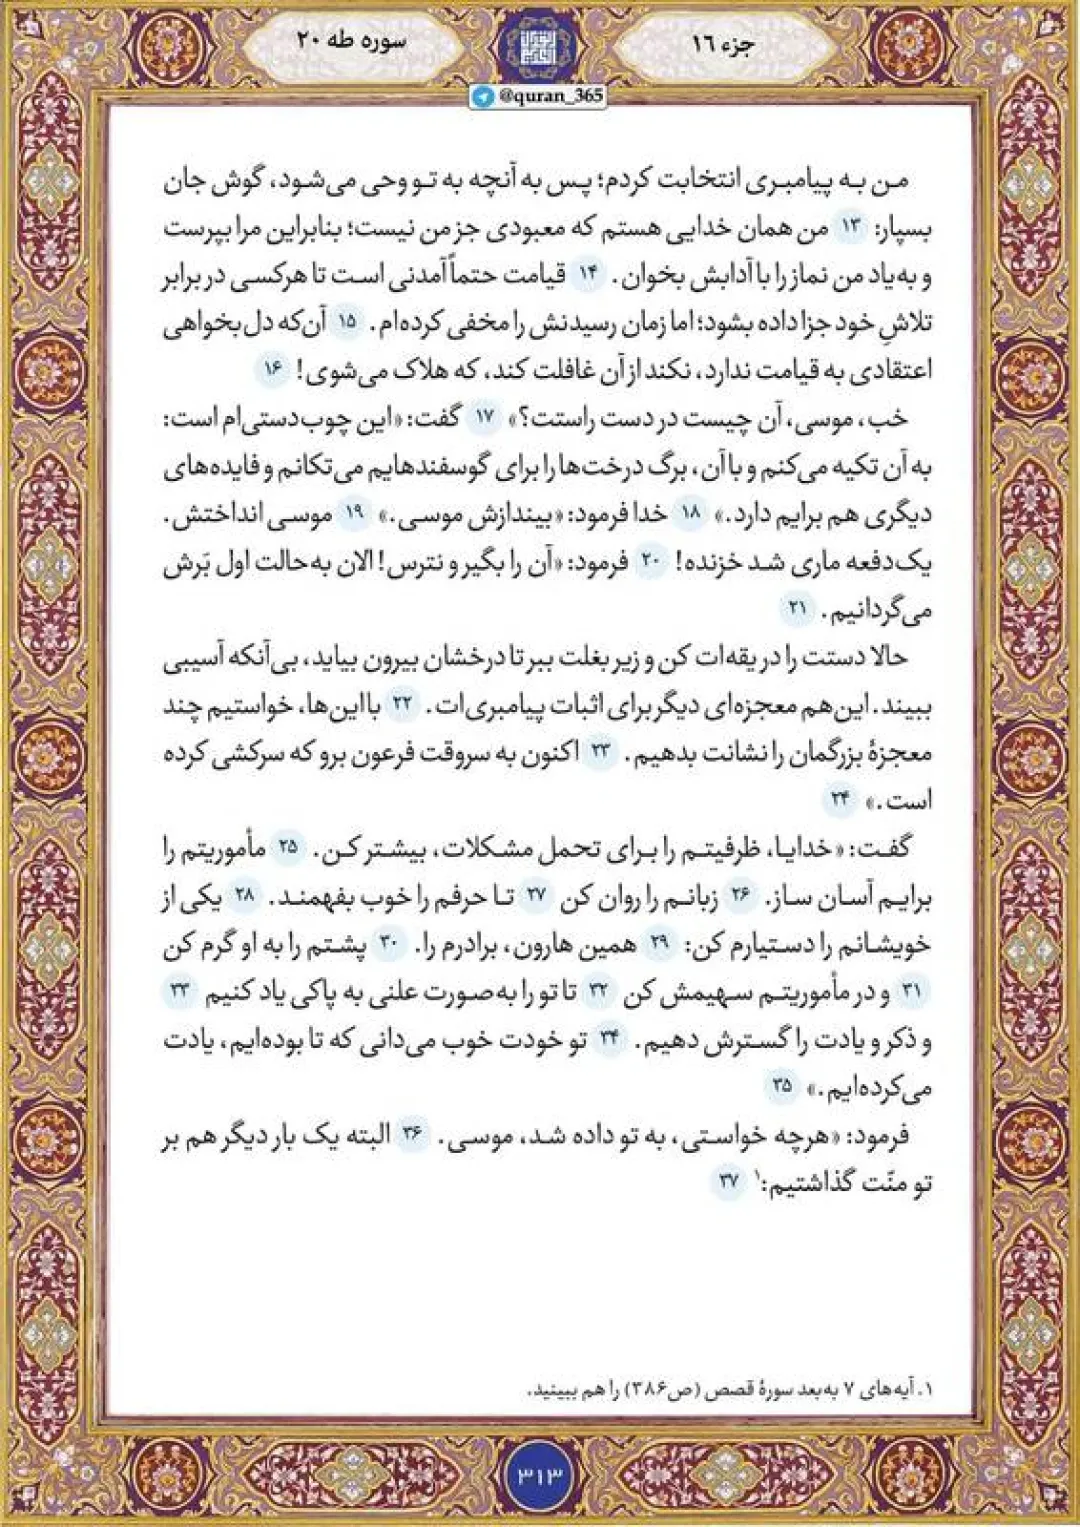 جزء ۱۶
سوره طه ۲۰
@quran_365
من به پیامبری انتخابت کردم؛ پس به آنچه به تو وحی می‌شود، گوش جان
بسپار: ۱۳ من همان خدایی هستم که معبودی جز من نیست؛ بنابراین مرا بپرست
و به‌یاد من نماز را با آدابش بخوان. ۱۴ قیامت حتماً آمدنی است تا هرکسی در برابر
تلاشِ خود جزا داده بشود؛ اما زمان رسیدنش را مخفی کرده‌ام. ۱۵ آن‌که دل‌بخواهی
اعتقادی به قیامت ندارد، نکند از آن غافلت کند، که هلاک می‌شوی! ۱۶
خب، موسی، آن چیست در دست راستت؟» ۱۷ گفت: «این چوب‌دستی‌ام است:
به آن تکیه می‌کنم و با آن، برگ درخت‌ها را برای گوسفندهایم می‌تکانم و فایده‌های
دیگری هم برایم دارد.» ۱۸ خدا فرمود: «بیندازش موسی.» ۱۹ موسی انداختش.
یک‌دفعه ماری شد خزنده! ۲۰ فرمود: «آن را بگیر و نترس! الان به‌حالت اول بَرش
می‌گردانیم. ۲۱
حالا دستت را در یقه‌ات کن و زیر بغلت ببر تا درخشان بیرون بیاید، بی‌آنکه آسیبی
ببیند. این هم معجزه‌ای دیگر برای اثبات پیامبری‌ات. ۲۲ با این‌ها، خواستیم چند
معجزهٔ بزرگمان را نشانت بدهیم. ۲۳ اکنون به سروقت فرعون برو که سرکشی کرده
است.» ۲۴
گفت: «خدایا، ظرفیتم را برای تحمل مشکلات، بیشتر کن. ۲۵ مأموریتم را
برایم آسان ساز. ۲۶ زبانم را روان کن ۲۷ تا حرفم را خوب بفهمند. ۲۸ یکی از
خویشانم را دستیارم کن: ۲۹ همین هارون، برادرم را. ۳۰ پشتم را به او گرم کن
۳۱ و در مأموریتم سهیمش کن ۳۲ تا تو را به‌صورت علنی به پاکی یاد کنیم ۳۳
و ذکر و یادت را گسترش دهیم. ۳۴ تو خودت خوب می‌دانی که تا بوده‌ایم، یادت
می‌کرده‌ایم.» ۳۵
فرمود: «هرچه خواستی، به تو داده شد، موسی. ۳۶ البته یک بار دیگر هم بر
تو منّت گذاشتیم:۱ ۳۷
۱. آیه‌های ۷ به‌بعد سورهٔ قصص (ص۳۸۶) را هم ببینید.
۳۱۳